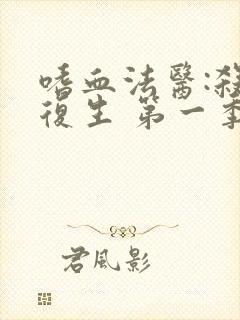 嗜血法醫:殺
復生 第一季
君風影